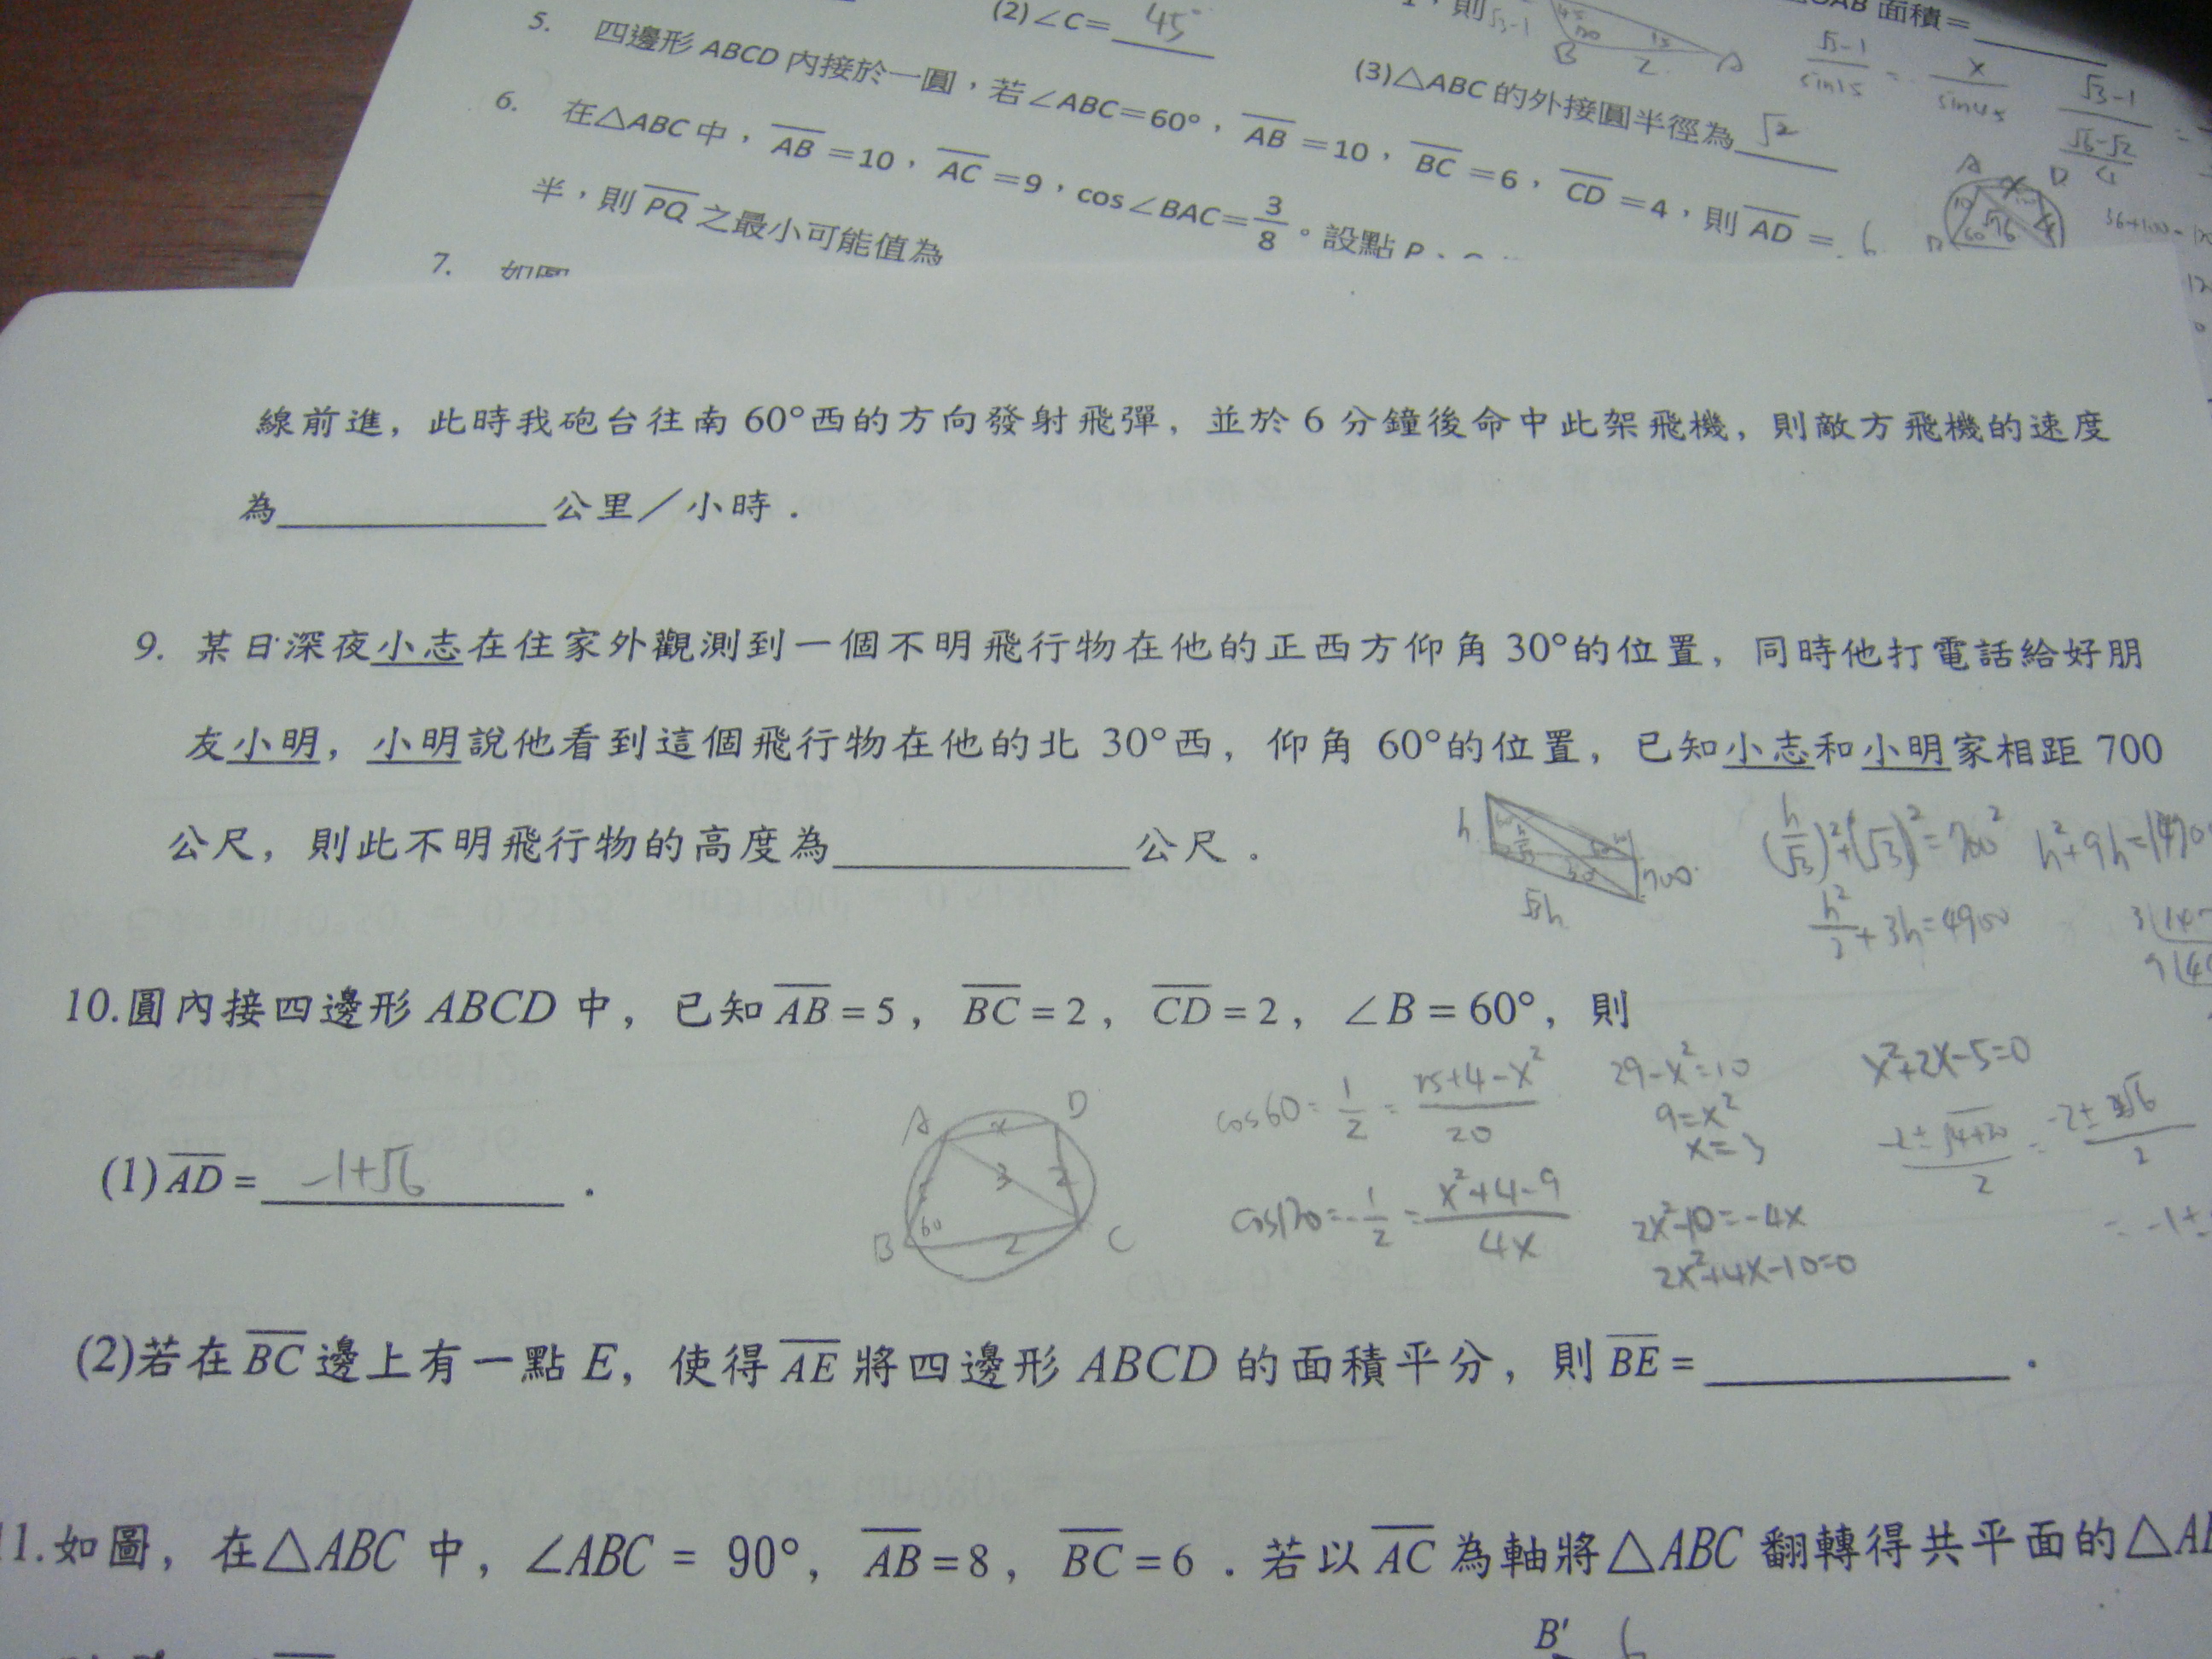 (2)∠C= 45°
5. 四邊形 ABCD 內接於一圓，若∠ABC=60°，AB=10，BC=6，CD=4，則 AD = 6
(3)△ABC 的外接圓半徑為 √2
面積=
6. 在△ABC 中，AB=10，AC=9，cos∠BAC=3/8。設點 P、
半，則 PQ 之最小可能值為
7.
√3-1/sin15 = x/sin45
√3-1
√6-√2
線前進，此時我砲台往南 60°西的方向發射飛彈，並於 6 分鐘後命中此架飛機，則敵方飛機的速度
為____公里／小時．
9. 某日深夜小志在住家外觀測到一個不明飛行物在他的正西方仰角 30°的位置，同時他打電話給好朋
友小明，小明說他看到這個飛行物在他的北 30°西，仰角 60°的位置，已知小志和小明家相距 700
公尺，則此不明飛行物的高度為____公尺．
h
√3h
700
(h/√3)²+(√3)²=700²
10.圓內接四邊形 ABCD 中，已知 AB=5，BC=2，CD=2，∠B=60°，則
cos60=1/2=25+4-x²/20
29-x²=10
9=x²
x=3
x²+2x-5=0
-2±√4+20/2
(1)AD= -1+√6．
A
D
x
3
2
B
60
2
C
cos120=-1/2=x²+4-9/4x
2x²-10=-4x
2x²+4x-10=0
(2)若在 BC 邊上有一點 E，使得 AE 將四邊形 ABCD 的面積平分，則 BE=____．
11.如圖，在△ABC 中，∠ABC = 90°，AB=8，BC=6．若以 AC 為軸將△ABC 翻轉得共平面的△A
B' 6